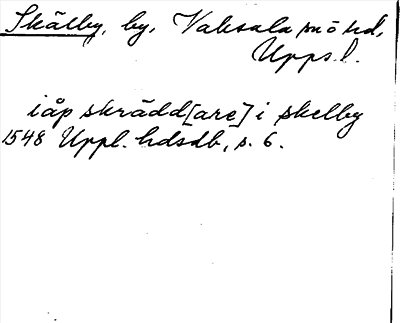 Skälby, by, Vaksala sn ö hd,
Upps.l.
iåp skrädd[are] i skelby
1548 Uppl. hdsdb, s. 6.